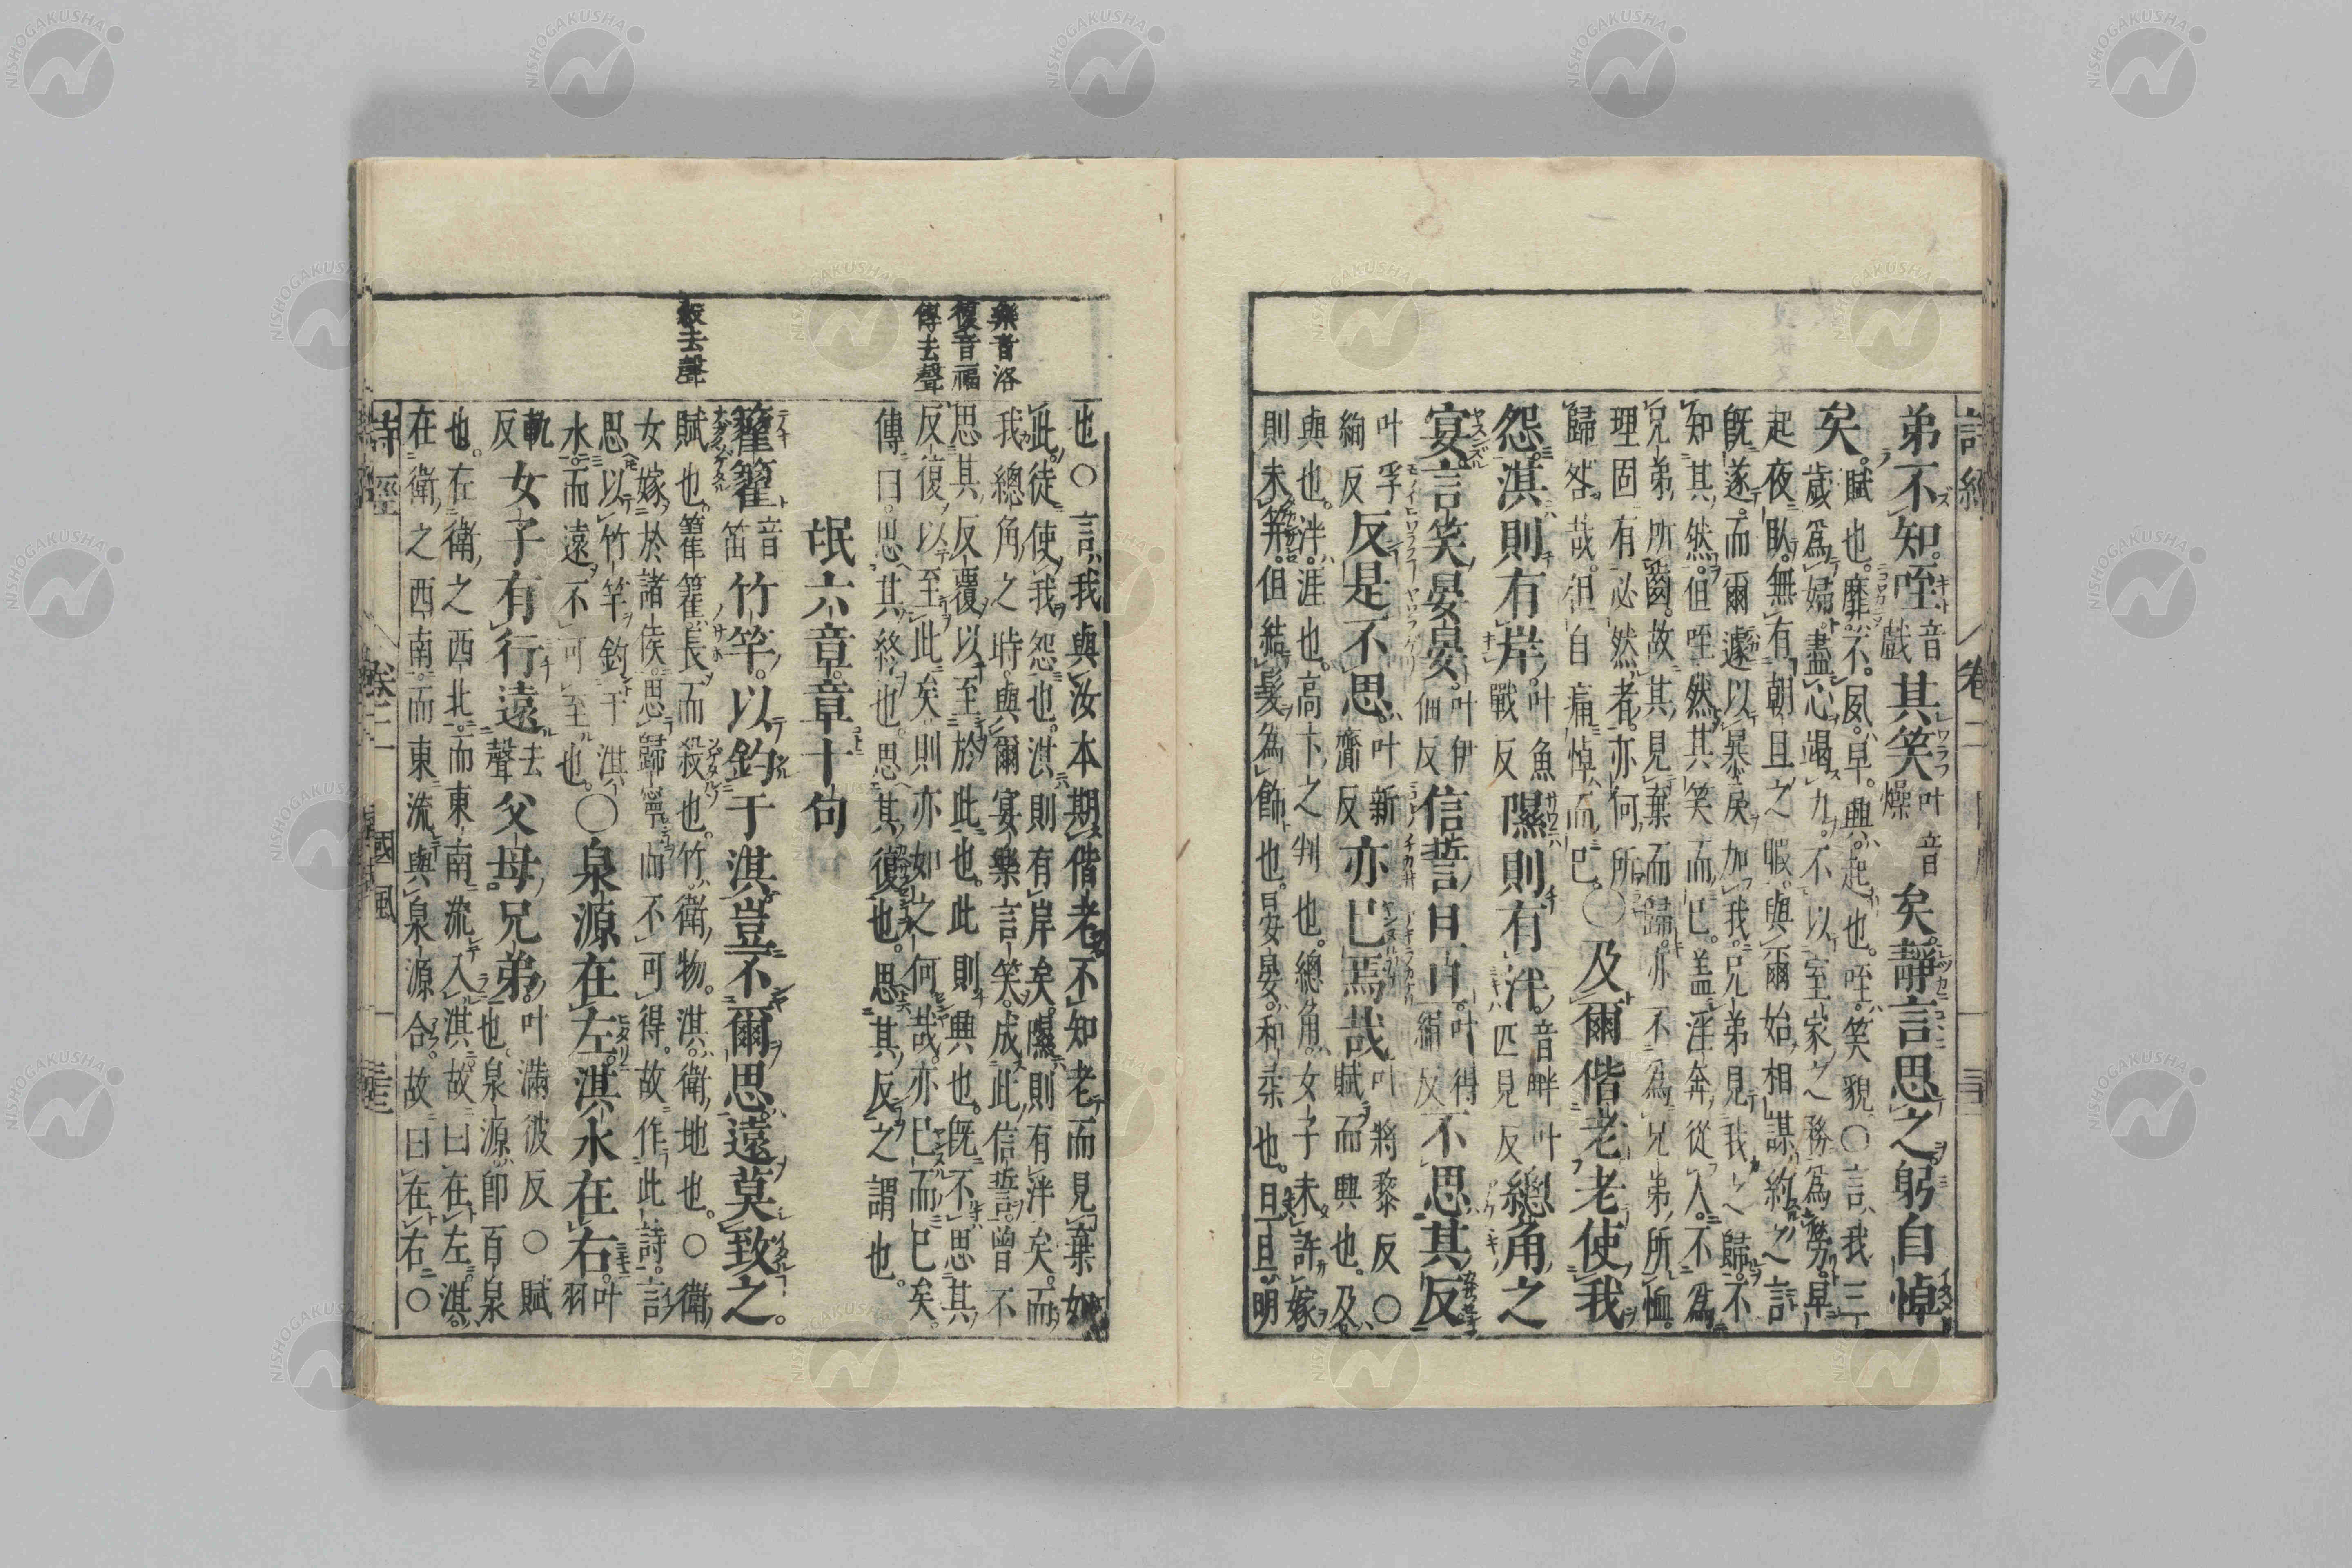 詩經 卷二
弟不知。咥音戲其笑叶音燥矣。靜言思之。躬自悼
矣。賦也。靡。不。夙。早。興。起也。咥。笑貌○言我三
歲爲婦。盡心竭力。不以室家之務爲勞。早
起夜臥。無有朝旦之暇。與爾始相謀約之言
既遂。而爾遽以暴戾加我。兄弟見我之歸。不
知其然。但咥然其笑而已。蓋淫奔從人。不爲
兄弟所齒。故其見棄而歸。亦不爲兄弟所恤。
理固有必然者。亦何所
歸咎哉。但自痛悼而已。○及爾偕老。老使我
怨。淇則有岸。叶魚戰反隰則有泮。音畔叶匹見反總角之
宴。言笑晏晏。叶伊佃反信誓旦旦。叶得絹反不思其反
叶孚絢反反是不思。叶新齎反亦已焉哉叶將黎反○賦而興也。及
與也。泮。涯也。高下之判也。總角。女子未許嫁
則未笄。但結髮爲飾也。晏晏。和柔也。旦旦。明
樂音洛
復音福
傳去聲
殺去聲
也○言我與汝本期偕老。不知老而見棄如
此。徒使我怨也。淇則有岸矣。隰則有泮矣。而
我總角之時。與爾宴樂言笑。成此信誓。曾不
思其反覆以至於此也。此則興也。既不思其
反復以至此矣。則亦如之何哉。亦已而已矣。
傳曰。思其終也。思其復也。思其反之謂也。
氓六章章十句
籊籊音笛竹竿。以釣于淇。豈不爾思。遠莫致之。
賦也。籊籊。長而殺也。竹。衛物。淇。衛地也。○衛
女嫁於諸侯。思歸寧而不可得。故作此詩。言
思以竹竿釣于淇
水。而遠不可至也。○泉源在左。淇水在右。叶羽
軌反女子有行。遠去聲父母兄弟。叶滿彼反○賦
也。泉源。即百泉
也。在衛之西北。而東南流入淇。故曰在左。淇。
在衛之西南。而東流與泉源合。故曰在右。○
詩經 卷二 國風